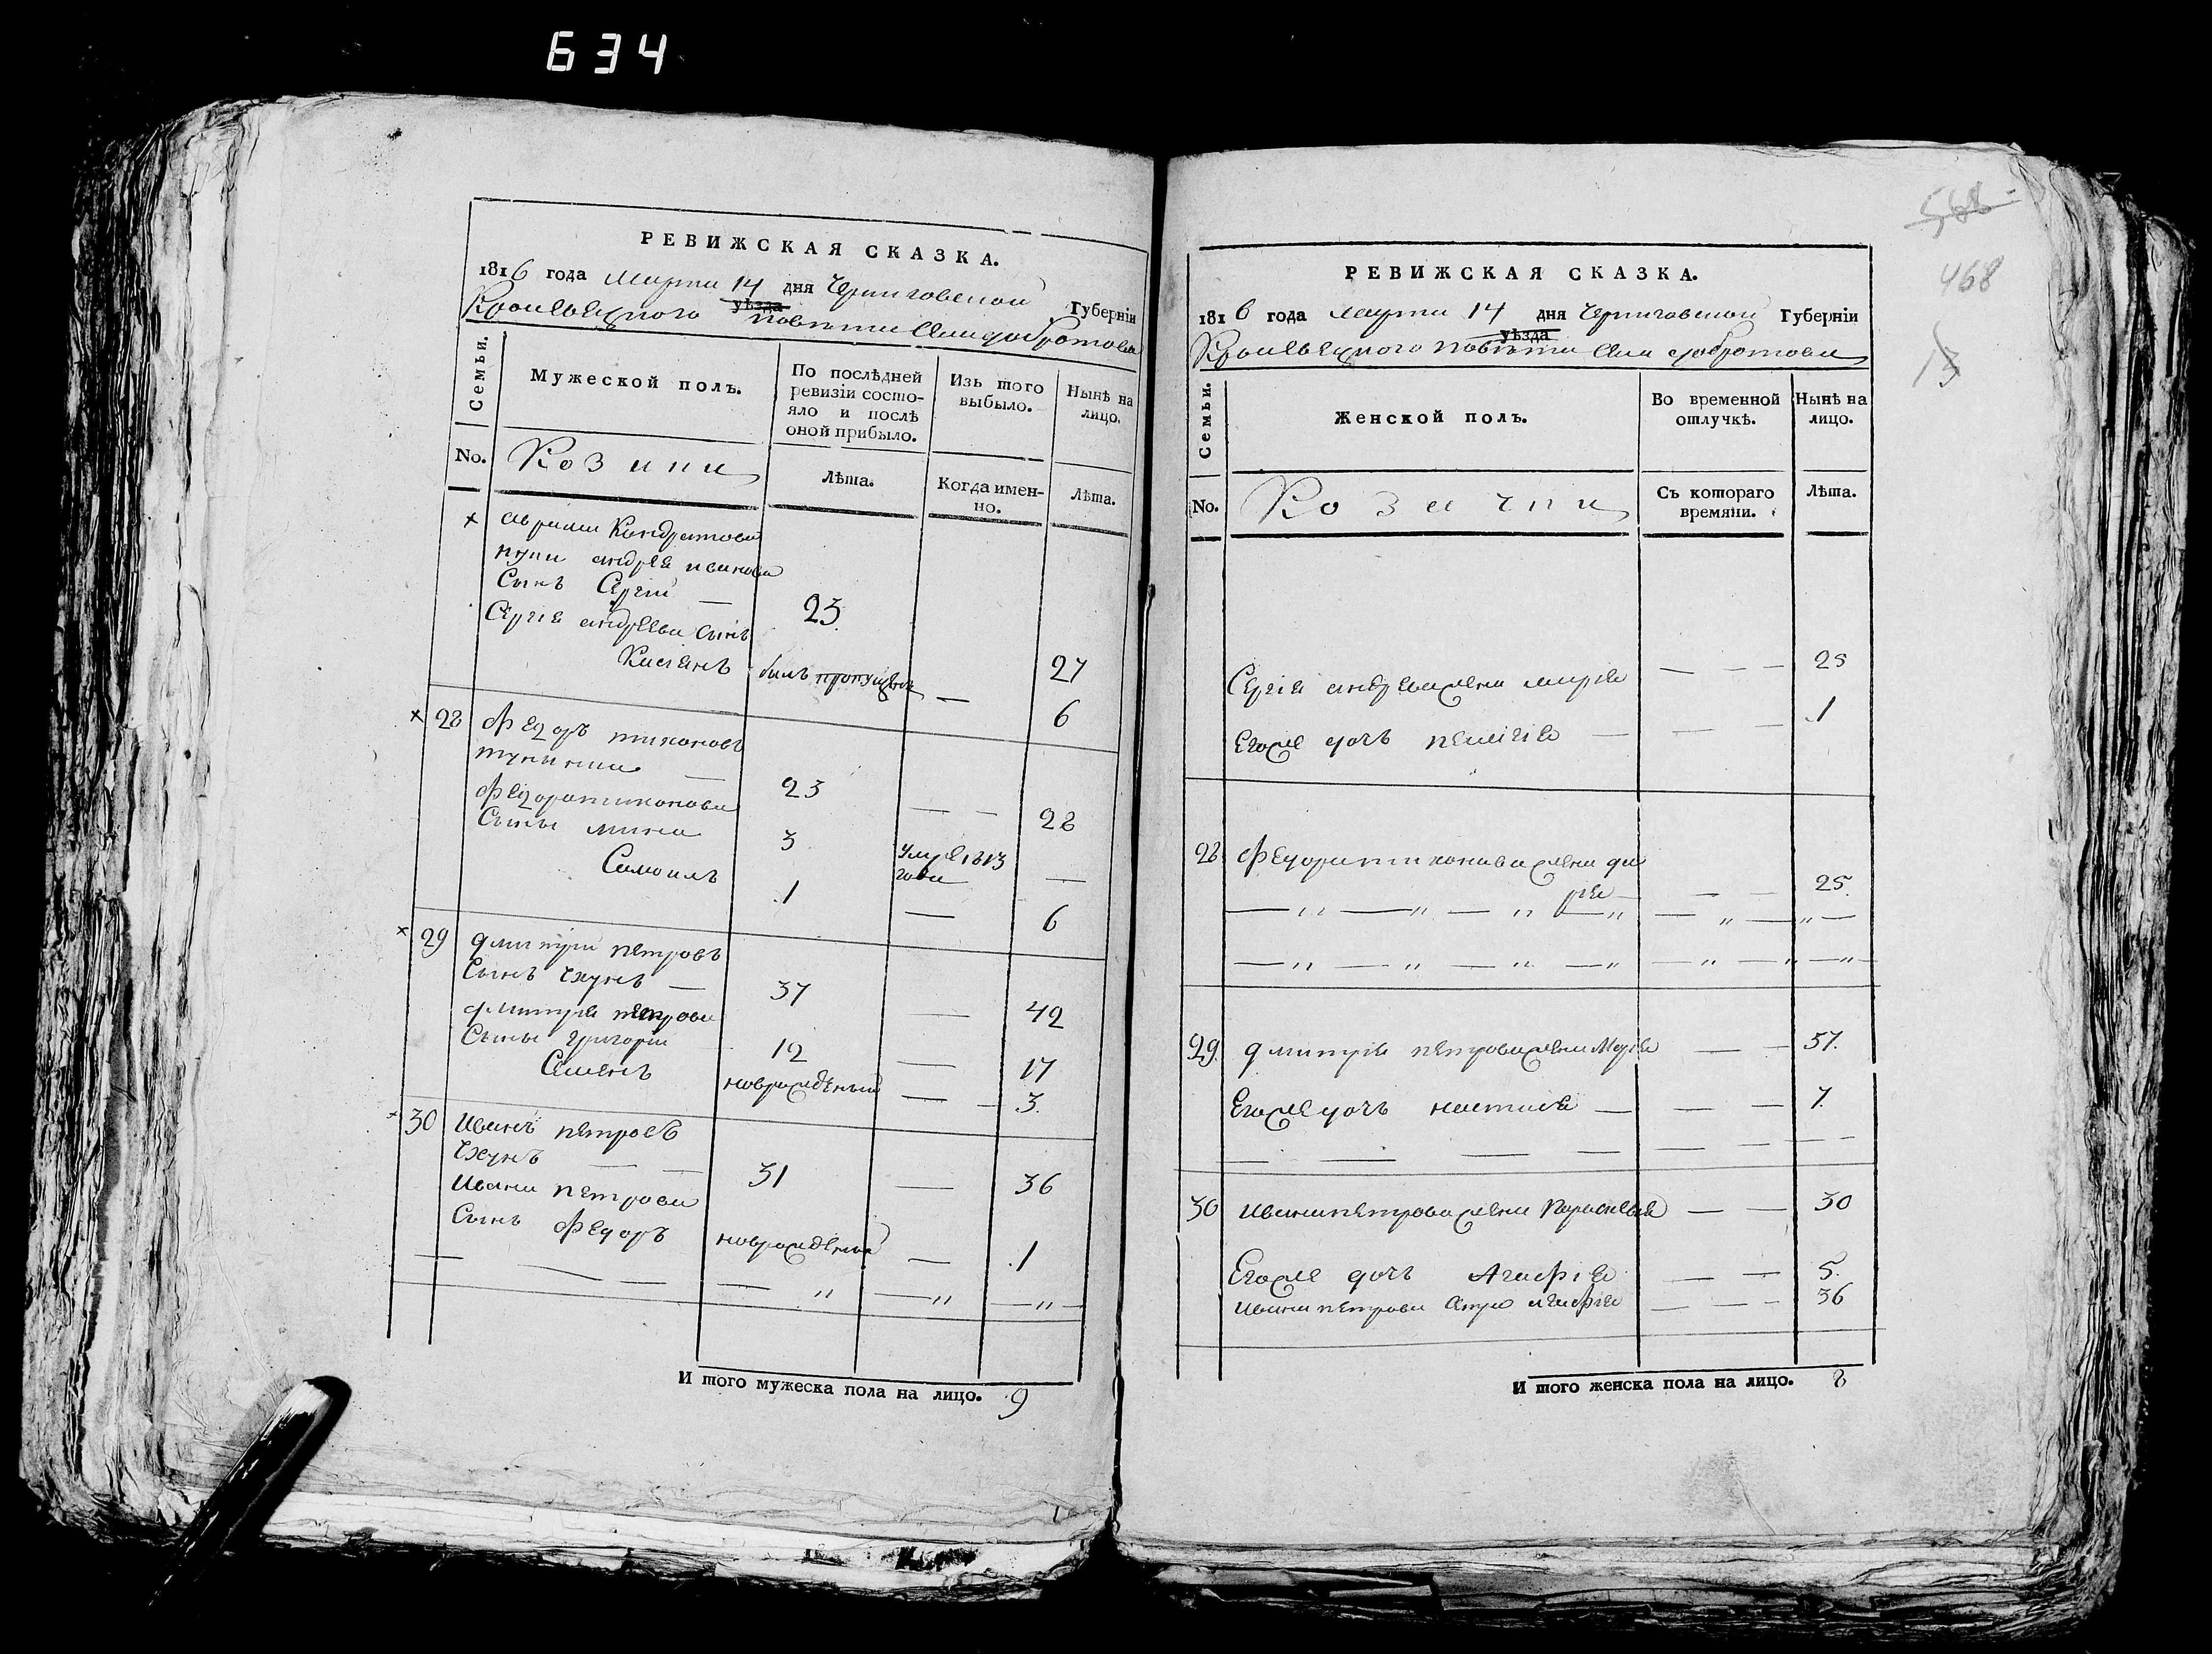 634
РЕВИЖСКАЯ СКАЗКА.
1816 года Марта 14 дня Черниговской Губерніи
Кролевецкого уѣзда повѣта Села Добротова
Семьи.
Мужеской полъ.
По послѣдней ревизіи состояло и послѣ оной прибыло.
Изъ того выбыло.
Нынѣ на лицо.
No.
Козаки
Лѣта.
Когда именно.
Лѣта.
Кондратова
андрея иванова
Сынъ Сергій — 23
Сергія андреева сынъ 27
Касіянъ былъ пропущенъ — 6
28 Федоръ тихоновъ
23 — — 28
Федора тихонова
Сыны мина 3 умре 1813 года —
Самоилъ 1 — 6
29 дмитрій петровъ
Сынъ Чхунъ — 37 — 42
дмитрія петрова
Сыны григорій 12 — 17
Семенъ новрожденный — — 3.
30 Иванъ петровъ
Чхунъ — — 31 — 36
Ивана петрова
Сынъ Федоръ новрожденный — 1
И того мужеска пола на лицо. 9
568
468
13
РЕВИЖСКАЯ СКАЗКА.
1816 года Марта 14 дня Черниговской Губерніи
Кролевецкого уѣзда повѣта Села Добротова
Семьи.
Женской полъ.
Во временной отлучкѣ.
Нынѣ на лицо.
No.
Козачки
Съ котораго времяни.
Лѣта.
Сергія андреева жена марія — — — 25
Егоже дочь пелагія — — — 1
28 Федора тихонова жена да
рія — — — 25.
29. дмитрія петрова жена Марія — — 37.
Егоже дочь настасія — — — 7.
30 Ивана петрова жена Параскевія — — 30
Егоже дочь Агафія — — 5.
Ивана петрова агафія — — — 36
И того женска пола на лицо. 8